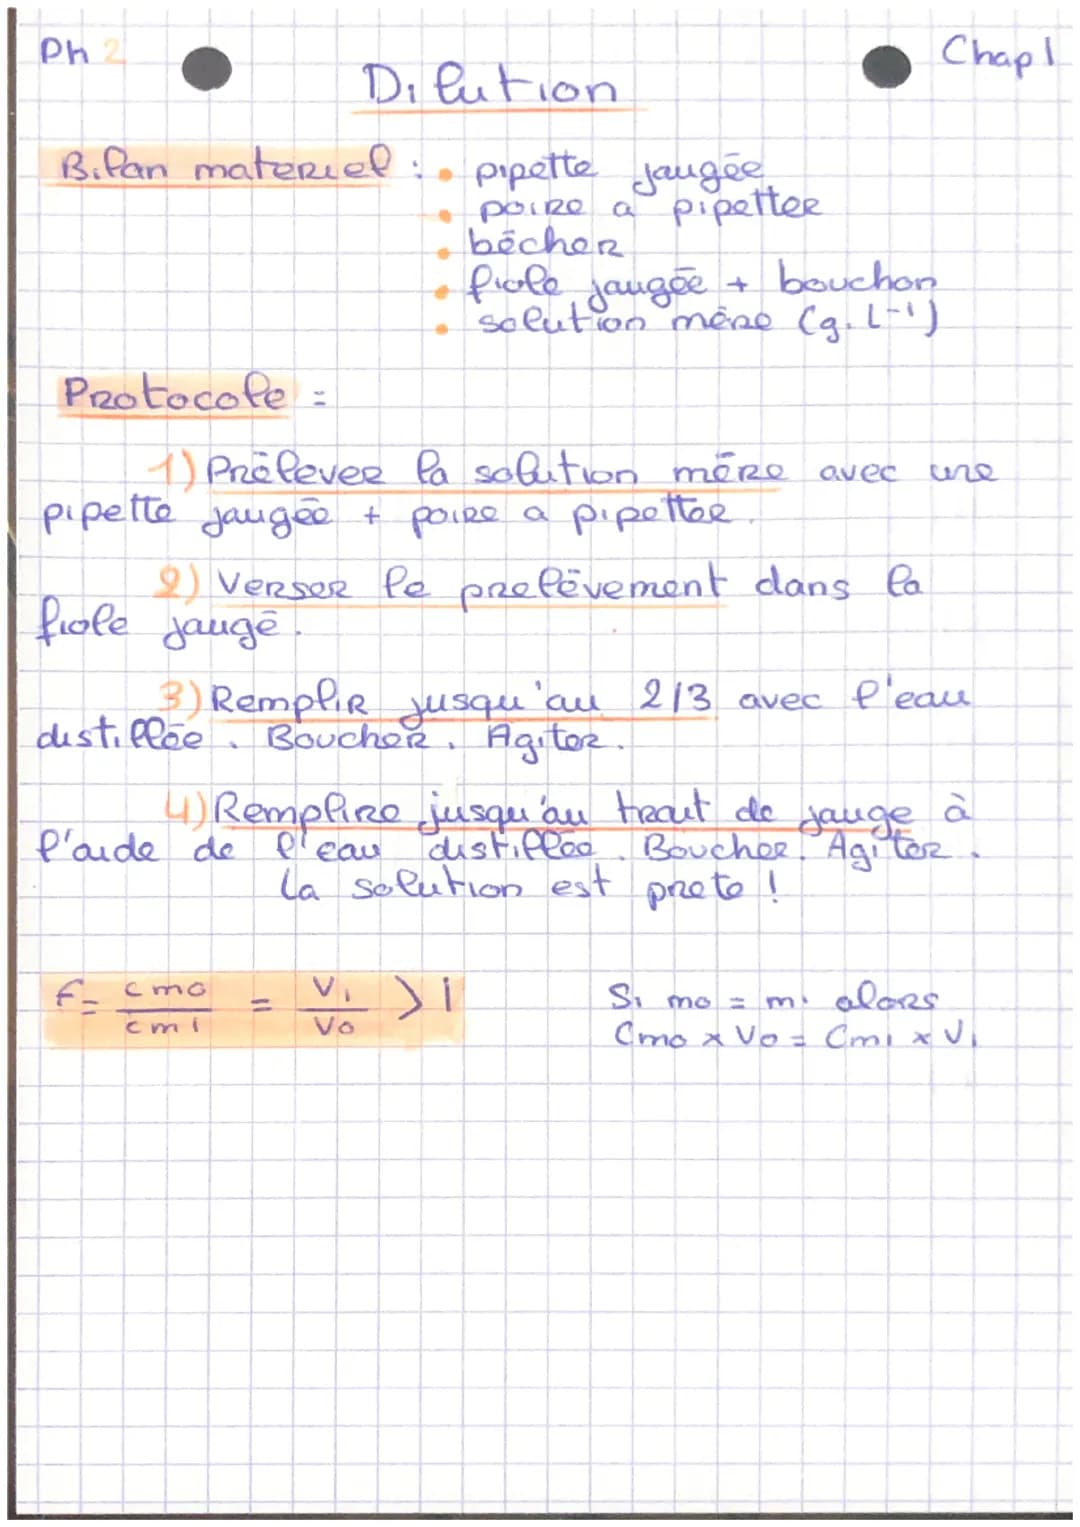 Ph 2
Chap 1
Dilution
Bilan materiel :
• pipette jaugée
• poire a pipetter
• bécher
• fiole jaugée + bouchon
• solution mère (g.L-1)
Protocole :
1) Prélever la solution mère avec une
pipette jaugée + poire a pipetter.
2) Verser le prelèvement dans la
fiole jaugé.
3) Remplir jusqu'au 2/3 avec l'eau
distillée. Boucher. Agiter.
4) Remplire jusqu'au trait de jauge à
l'aide de l'eau distillée. Boucher. Agiter.
La solution est prete !
F = cm0 / cm1 = V1 / V0 > 1
Si m0 = m1 alors
Cm0 x V0 = Cm1 x V1